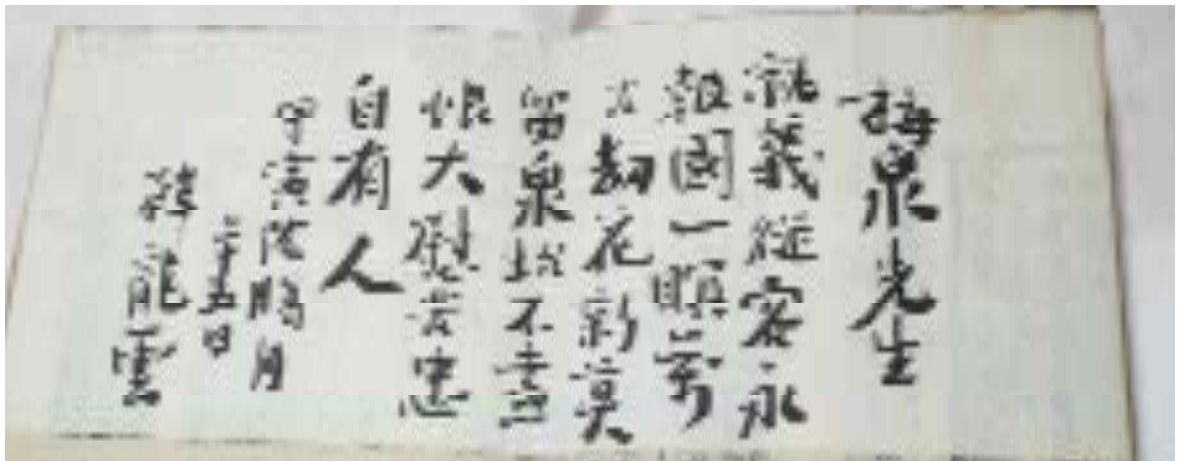 梅泉先生
就義從容永
報國一瞑萬
古劫花新莫
留泉坮不盡
恨大慰苦忠
自有人
甲寅陰臘月
五日
韓龍雲